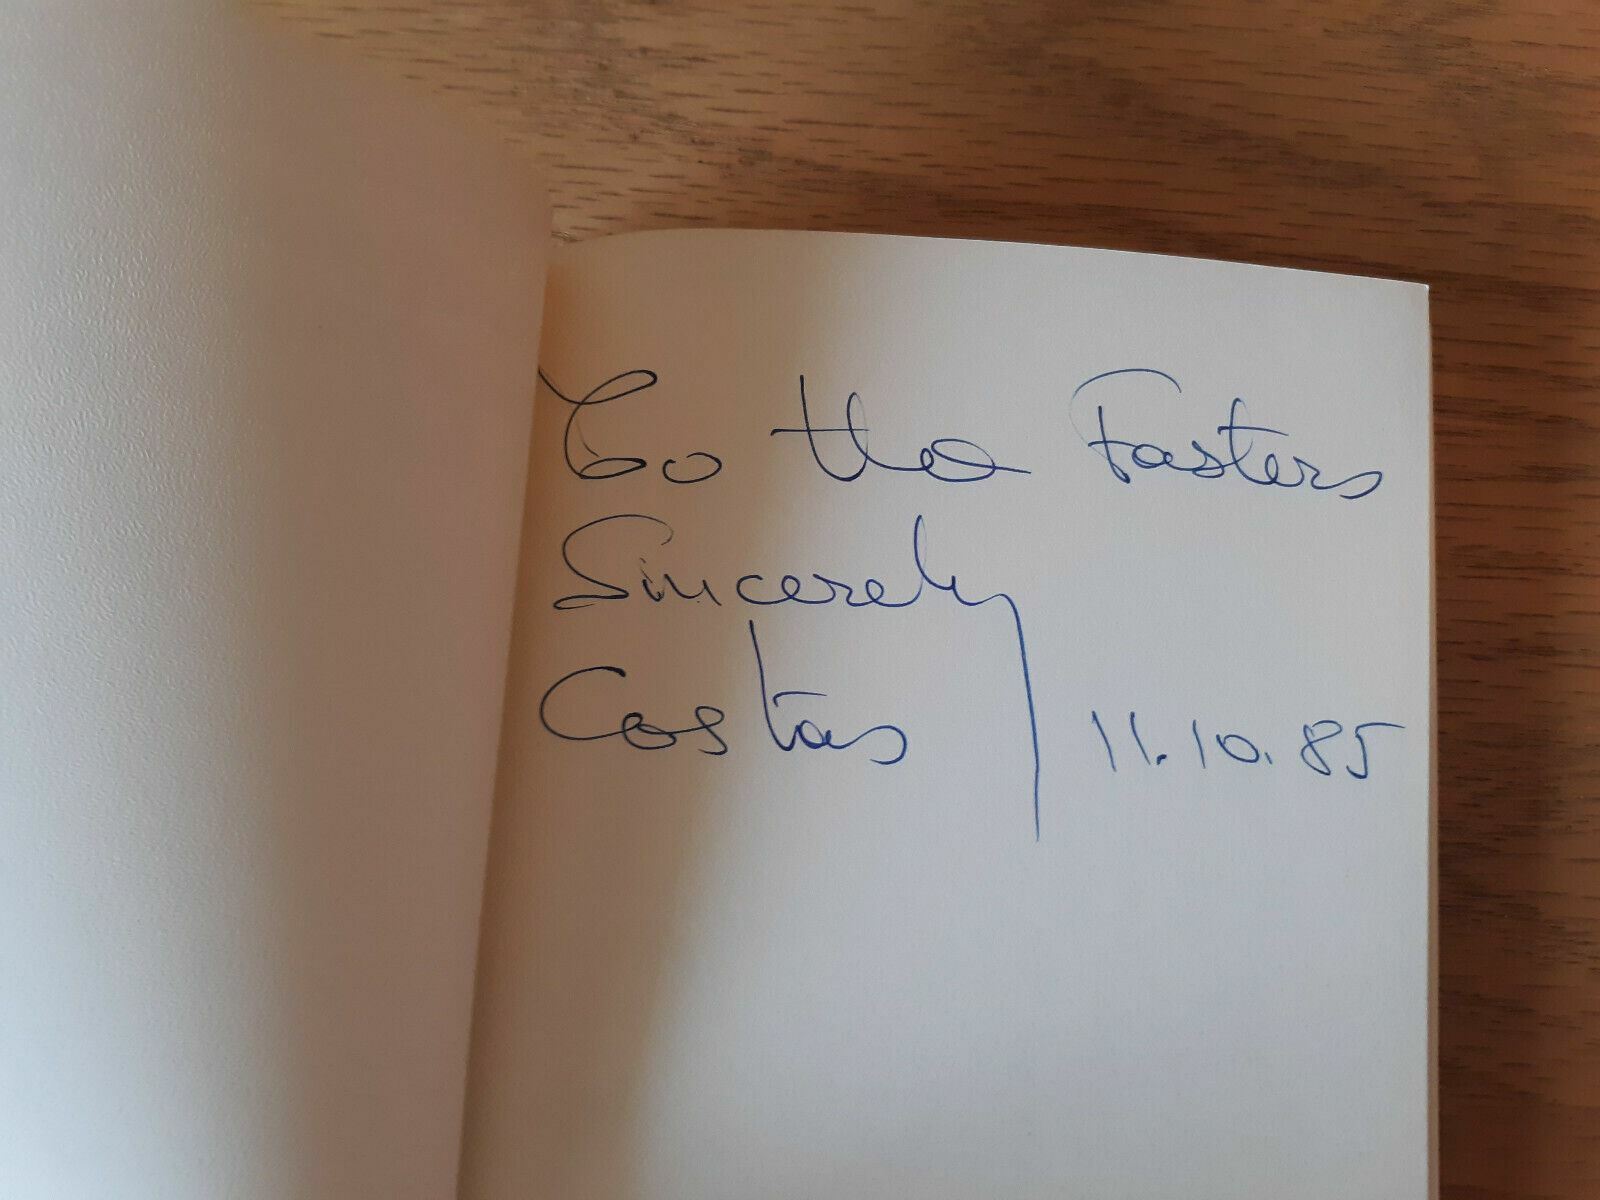 To the Fasters
Sincerely
Costas 11.10.85